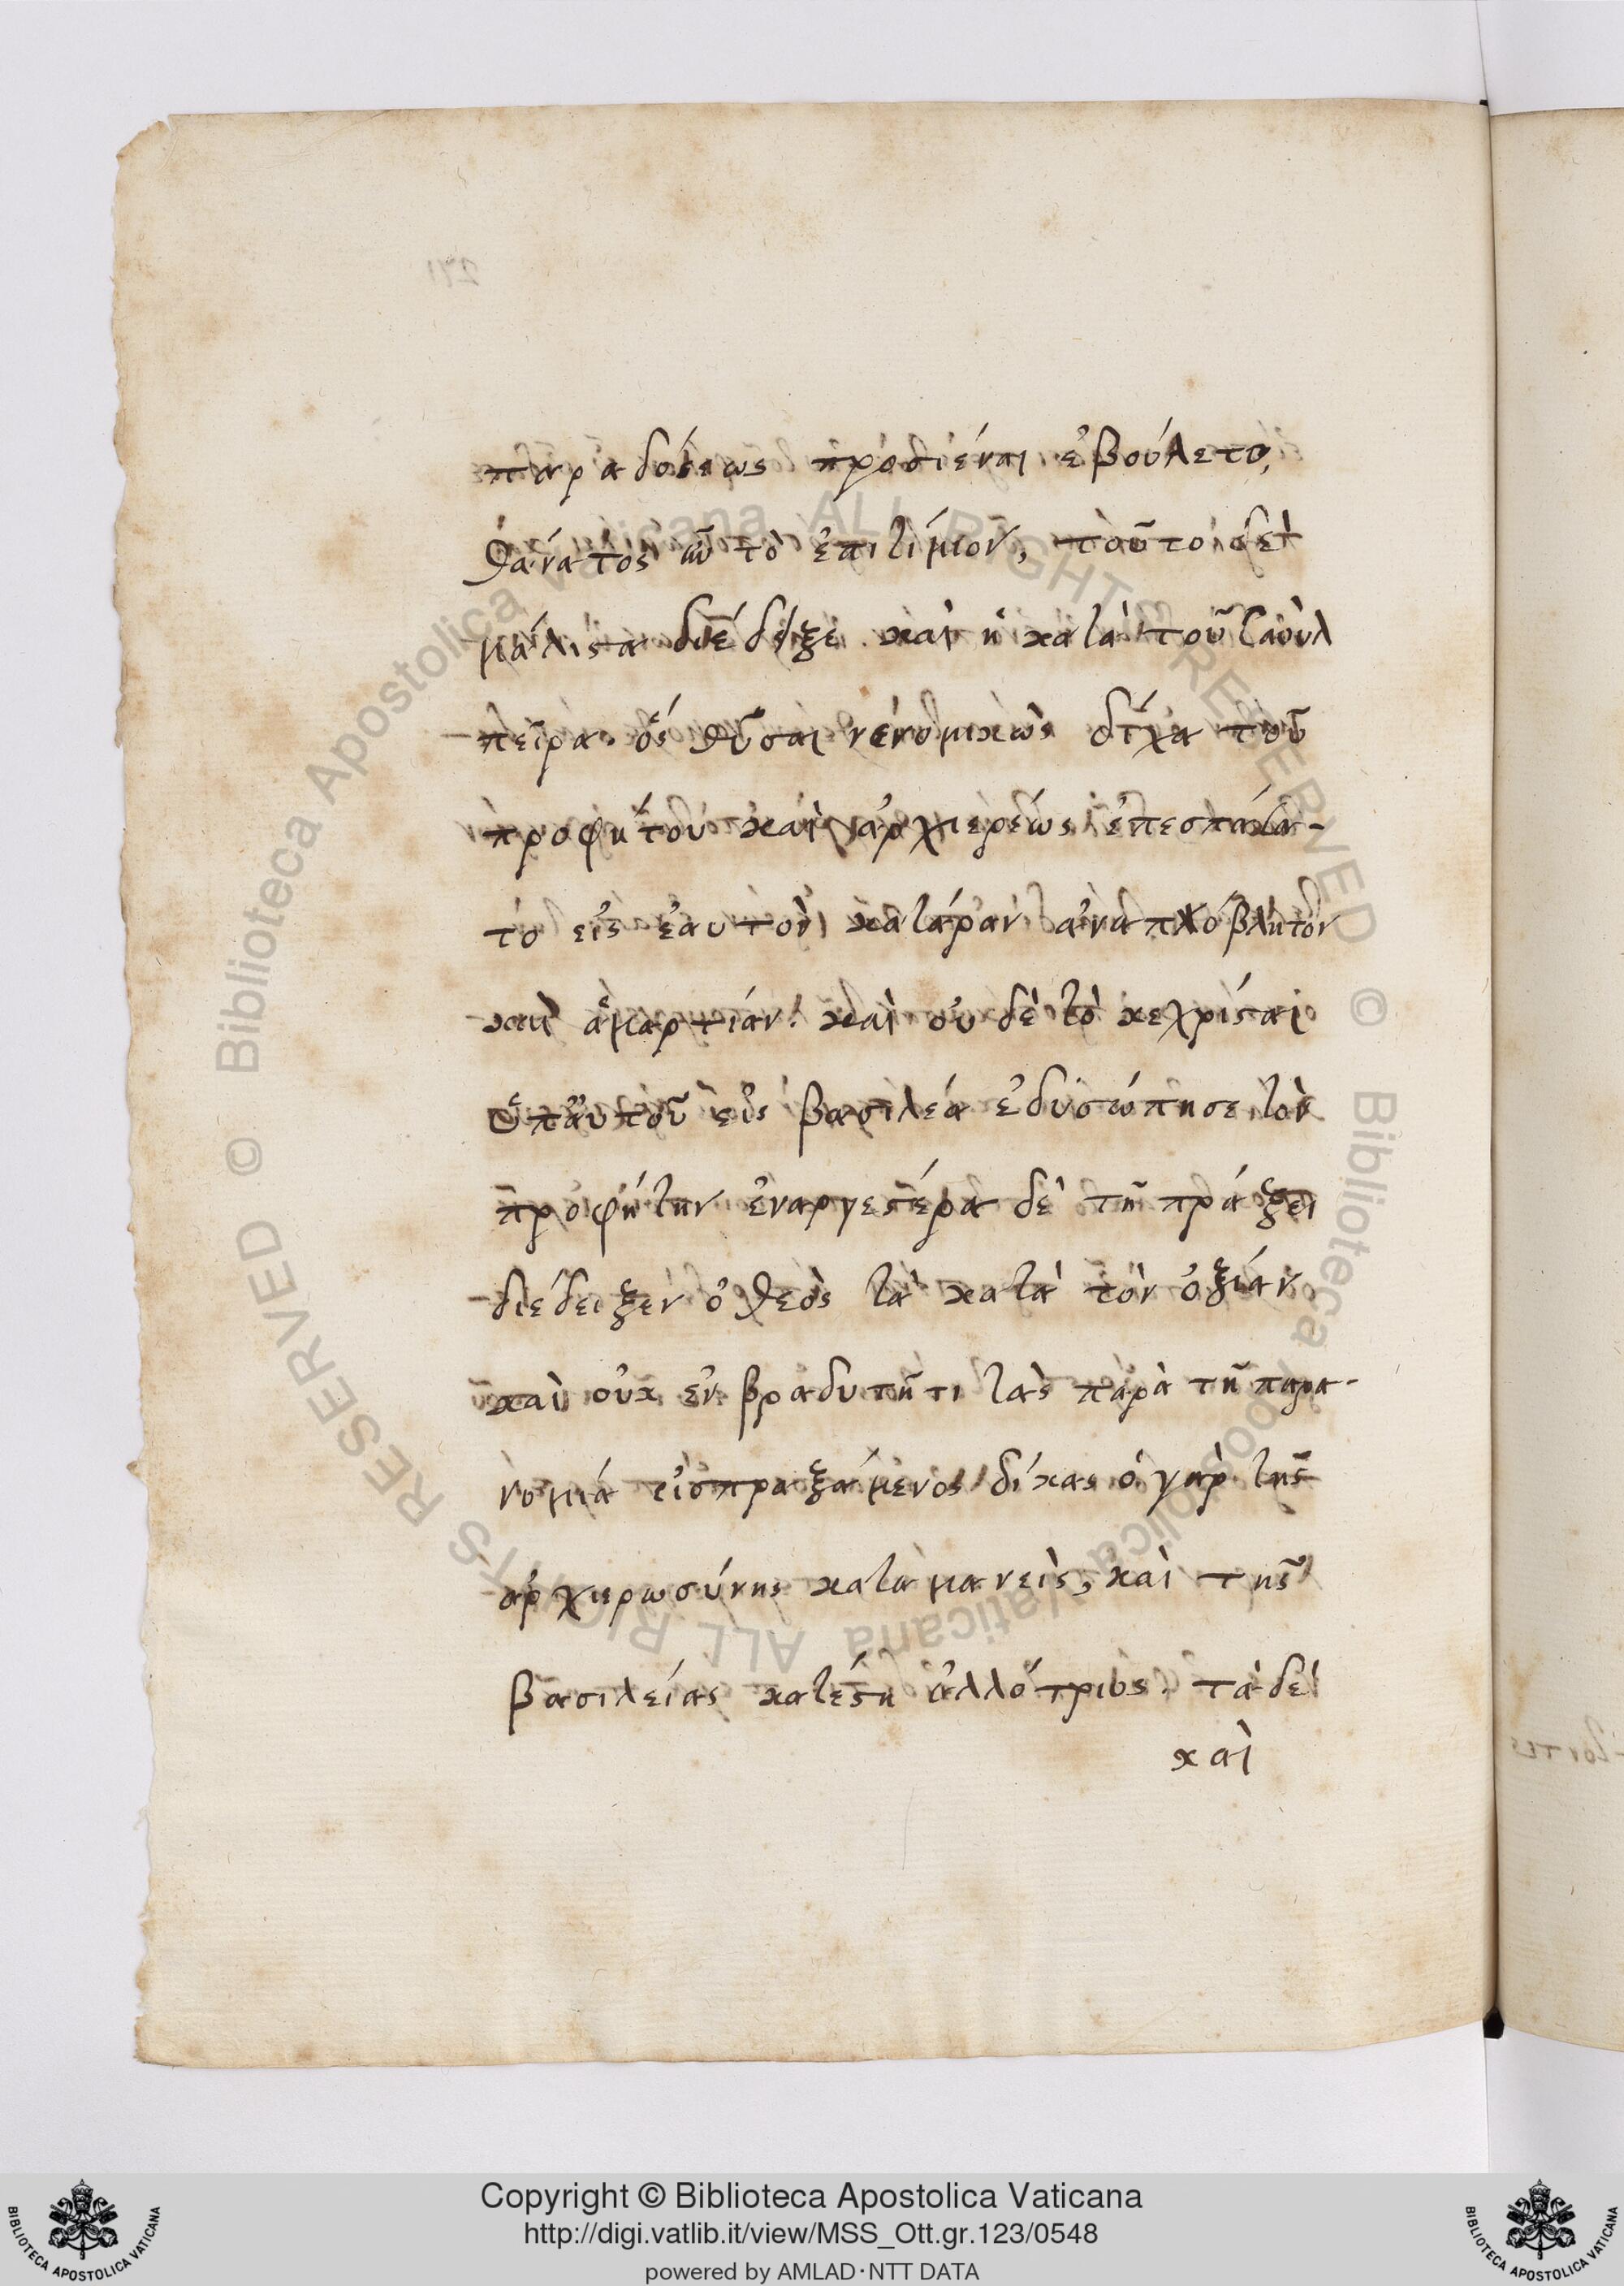 271
παραδόσεως προσιέναι ἐβούλετο,
θάνατος ἦν τὸ ἐπιτίμιον, τοῦτο δὲ
μάλιστα διέδειξε καὶ ἡ κατὰ τοῦ Σαοὺλ
πεῖρα. ὃς θῦσαι νενομικὼς δίχα τοῦ
προφήτου καὶ ἀρχιερέως ἐπεσπάσα-
το εἰς ἑαυτὸν κατάραν ἀναπόβλητον
καὶ ἁμαρτίαν. καὶ οὐδὲ τὸ κεχρίσαι
ὑπ' αὐτοῦ εἰς βασιλέα ἐδυσώπησε τὸν
προφήτην ἐναργεστέρα δὲ τῇ πράξει
διέδειξεν ὁ θεὸς τὰ κατὰ τὸν ὀζίαν
καὶ οὐκ ἐν βραδυτῆτι τὰς παρὰ τῇ παρα-
νομίᾳ εἰσπραξάμενος δίκας ὁ γὰρ τῆς
ἀρχιερωσύνης καταμανεὶς, καὶ τῆς
βασιλείας κατέστη ἀλλότριος. τὰ δὲ
καὶ
Copyright © Biblioteca Apostolica Vaticana
http://digi.vatlib.it/view/MSS_Ott.gr.123/0548
powered by AMLAD·NTT DATA
BIBLIOTECA APOSTOLICA VATICANA
BIBLIOTECA APOSTOLICA VATICANA
© Biblioteca Apostolica Vaticana ALL RIGHTS RESERVED © Biblioteca Apostolica Vaticana ALL RIGHTS RESERVED